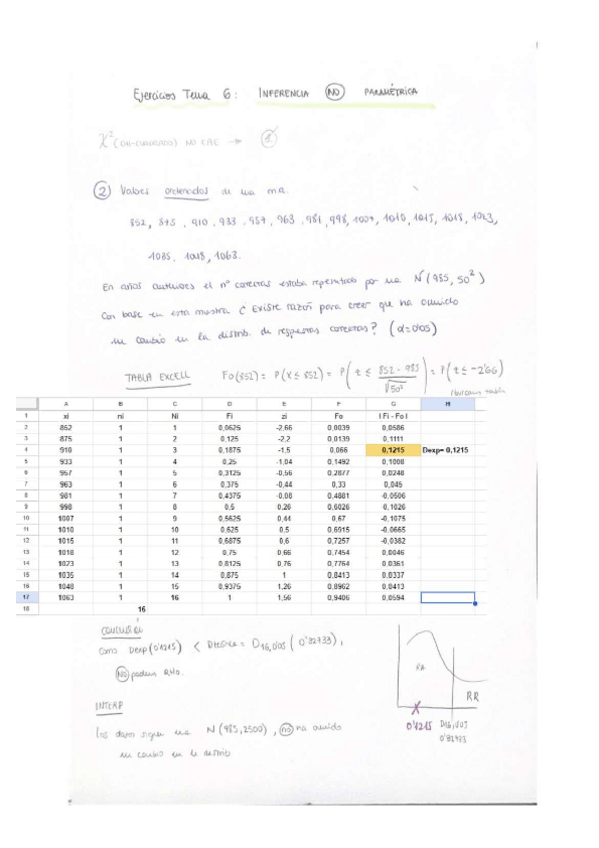 Ejercicios Tema 6: INFERENCIA NO PARAMÉTRICA
X² (CHI-CUADRADO) NO CAE → 8.
2 Valores ordenados de una m.a.
852, 875, 910, 933, 957, 963, 981, 998, 1007, 1010, 1015, 1018, 1023,
1035, 1048, 1063.
En años anteriores el nº correctas estaba representado por una N(985, 50²)
Con base en esta muestra ¿Existe razón para creer que ha ocurrido
un cambio en la distrib. de respuestas correctas? (α=0'05)
TABLA EXCELL Fo(852) = P(X ≤ 852) = P(z ≤ 852 - 985 / √50²) = P(z ≤ -2'66)
tabla
A B C D E F G H
1 xi ni Ni Fi zi Fo I Fi - Fo I
2 852 1 1 0,0625 -2,66 0,0039 0,0586
3 875 1 2 0,125 -2,2 0,0139 0,1111
4 910 1 3 0,1875 -1,5 0,066 0,1215 Dexp= 0,1215
5 933 1 4 0,25 -1,04 0,1492 0,1008
6 957 1 5 0,3125 -0,56 0,2877 0,0248
7 963 1 6 0,375 -0,44 0,33 0,045
8 981 1 7 0,4375 -0,08 0,4681 -0,0306
9 998 1 8 0,5 0,26 0,6026 -0,1026
10 1007 1 9 0,5625 0,44 0,67 -0,1075
11 1010 1 10 0,625 0,5 0,6915 -0,0665
12 1015 1 11 0,6875 0,6 0,7257 -0,0382
13 1018 1 12 0,75 0,66 0,7454 0,0046
14 1023 1 13 0,8125 0,76 0,7764 0,0361
15 1035 1 14 0,875 1 0,8413 0,0337
16 1048 1 15 0,9375 1,26 0,8962 0,0413
17 1063 1 16 1 1,56 0,9406 0,0594
18 16
CONCLUSIÓN
Como Dexp (0'1215) < Dteórica = D16,0'05 (0'32733),
NO podem RHo.
RA
RR
0'1215 D16,0'05
INTERP
Los datos siguen una N(985,2500), no ha ocurrido
un cambio en la distrib